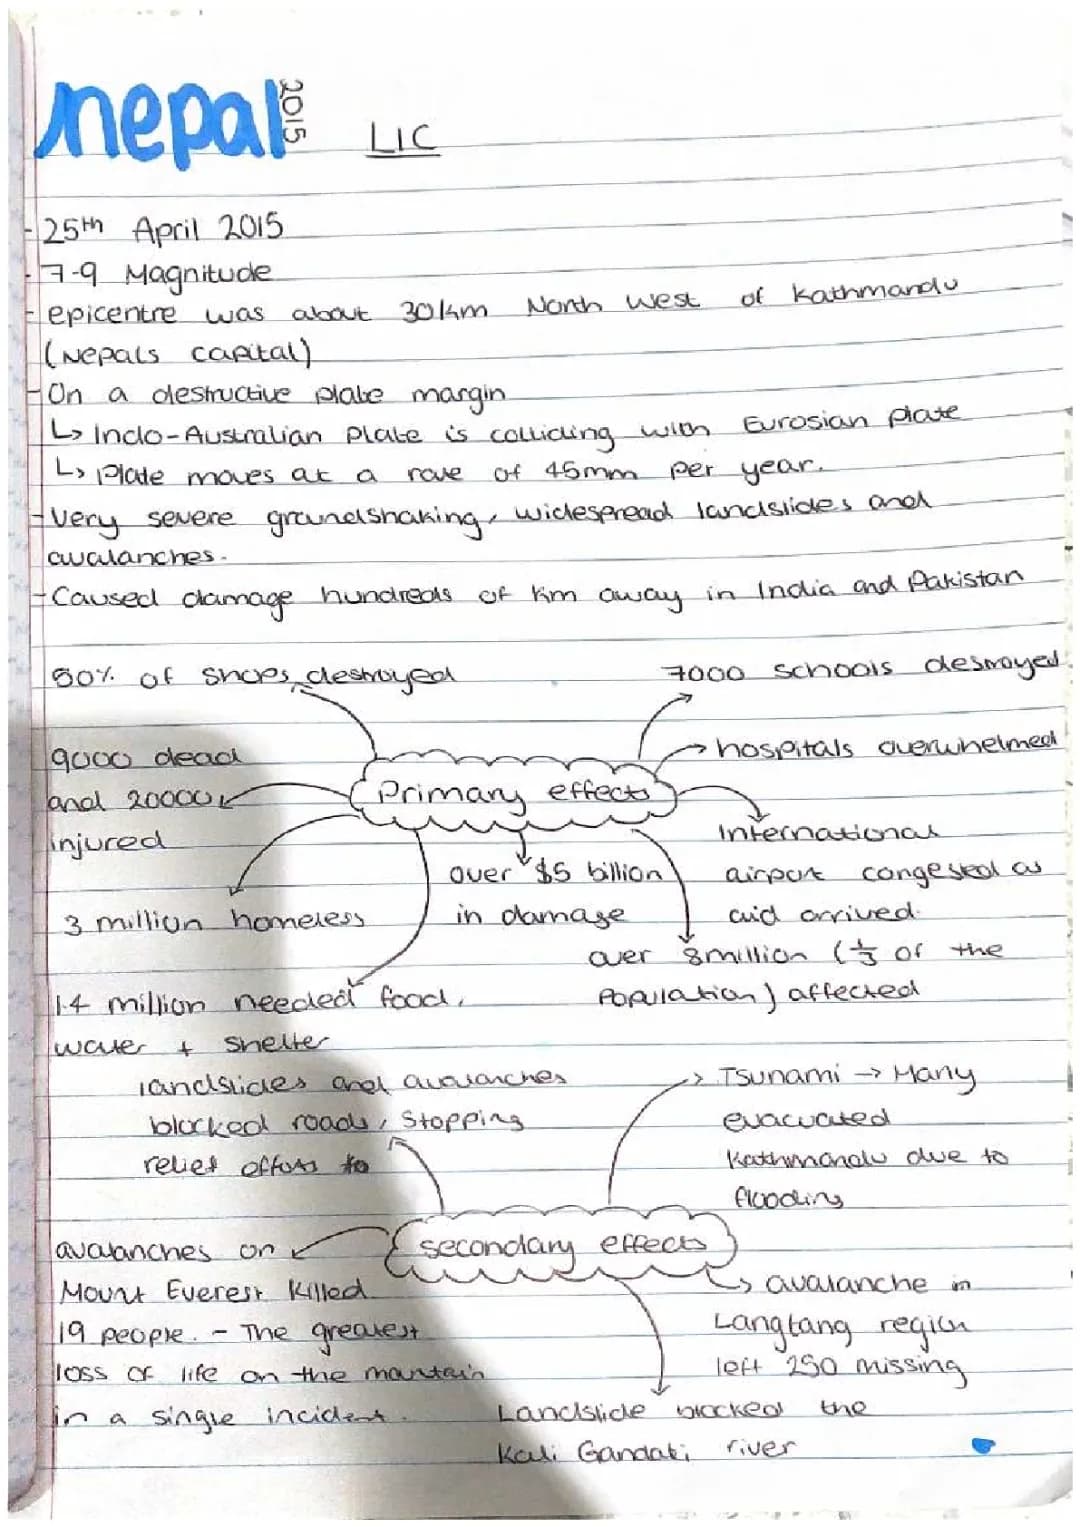 nepal 2015 LIC
- 25th April 2015
- 7.9 Magnitude
- epicentre was about 30km North West of Kathmandu
(Nepals capital)
- On a destructive plate margin
↳ Indo-Australian Plate is colliding with Eurosian plate
↳ Plate moves at a rate of 45mm per year.
- Very severe groundshaking, widespread landslides and
avalanches.
- Caused damage hundreds of km away in India and Pakistan
50% of shops destroyed
7000 schools destroyed
hospitals overwhelmed
9000 dead
and 20000
injured
Primary effects
International
airport congested as
aid arrived.
over $5 billion
in damage
3 million homeless
over 8million (1/3 of the
Population) affected
1.4 million needed food,
water + shelter
landslides and avalanches
blocked roads, stopping
relief efforts to
Tsunami → Many
evacuated
Kathmandu due to
flooding
secondary effects
avalanches on
Mount Everest killed
19 people. - The greatest
loss of life on the mountain
in a single incident.
avalanche in
Langtang region
left 250 missing
Landslide blocked the
Kali Gandati river